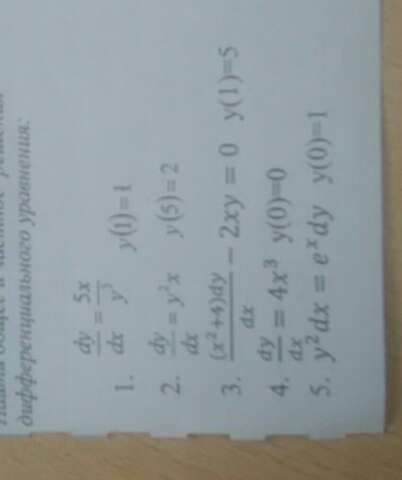 дифференциального уравнения:
1. dy/dx = 5x/y³ y(1)=1
2. dy/dx = y²x y(5)=2
3. (x²+4)dy/dx − 2xy = 0 y(1)=5
4. dy/dx = 4x³ y(0)=0
5. y²dx = eˣdy y(0)=1